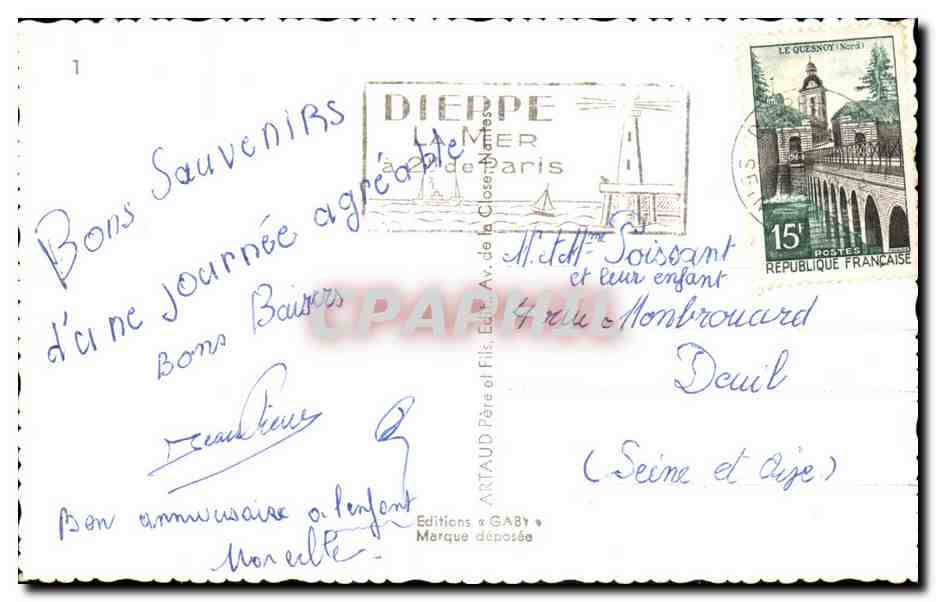 1
Bons Souvenirs
d'une journée agréable
Bons Baisers
Jean Pierre
Bon anniversaire a l'enfant
DIEPPE
LA MER
à 2h de Paris
LE QUESNOY (Nord)
15F
POSTES
REPUBLIQUE FRANÇAISE
M. et Mme Poissant
et leur enfant
4 rue Monbrouard
Deuil
(Seine et Oise)
ARTAUD Père et Fils, Edit., Av. de la Close, Nantes
Editions « GABY »
Marque déposée
CPAPHIL